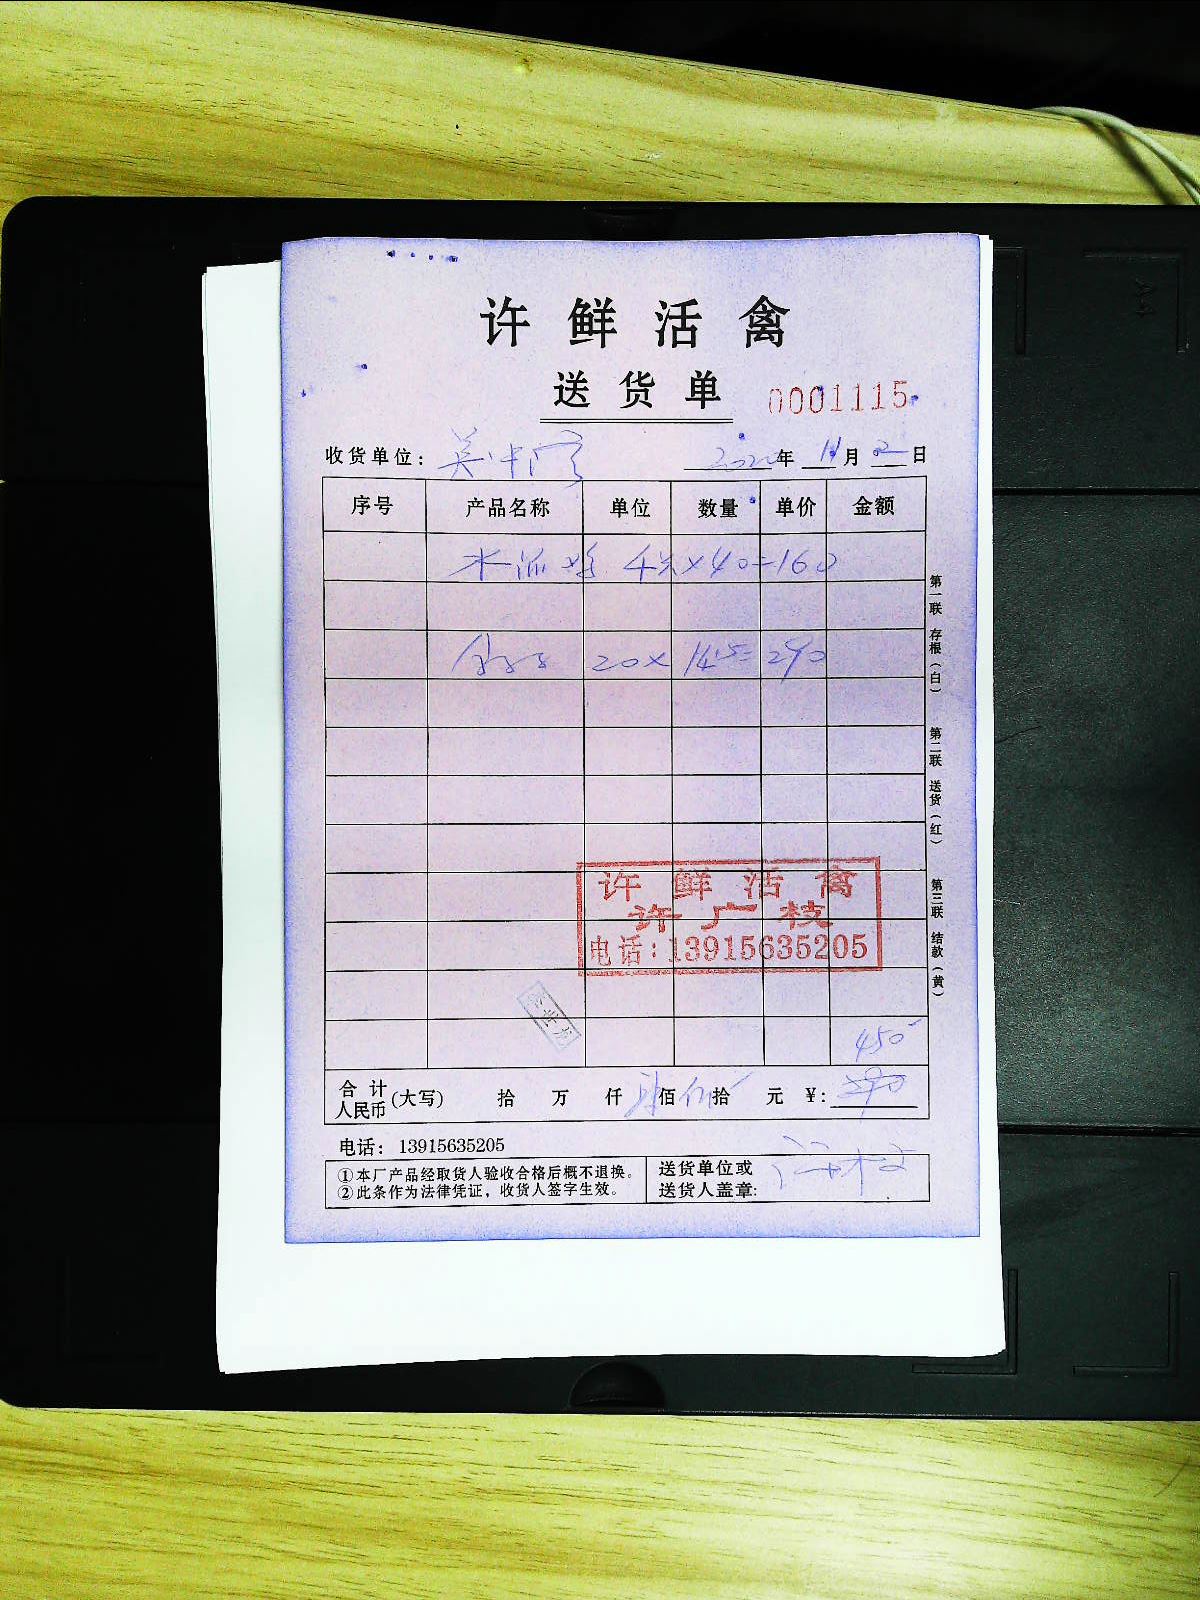 许鲜活禽
送货单
0001115
收货单位：
2020年11月2日
序号 产品名称 单位 数量 单价 金额
4只×40=160
20× 14.5=290
许鲜活禽
许广枝
电话：13915635205
450
合计人民币(大写) 拾 万 仟 佰 拾 元 ¥: 290
电话：13915635205
①本厂产品经取货人验收合格后概不退换。
②此条作为法律凭证，收货人签字生效。
送货单位或
送货人盖章:
第一联 存根(白)
第二联 送货(红)
第三联 结款(黄)